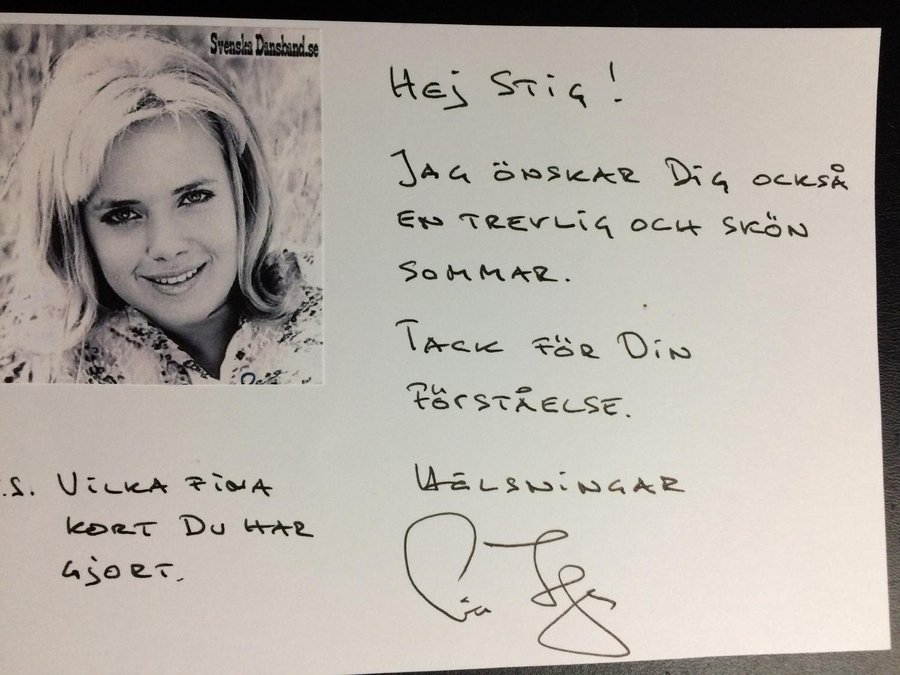 Svenska Dansband.se
Hej Stig!
Jag önskar Dig också
en trevlig och skön
sommar.
Tack för Din
förståelse.
Hälsningar
.S. Vilka fina
kort Du har
gjort.